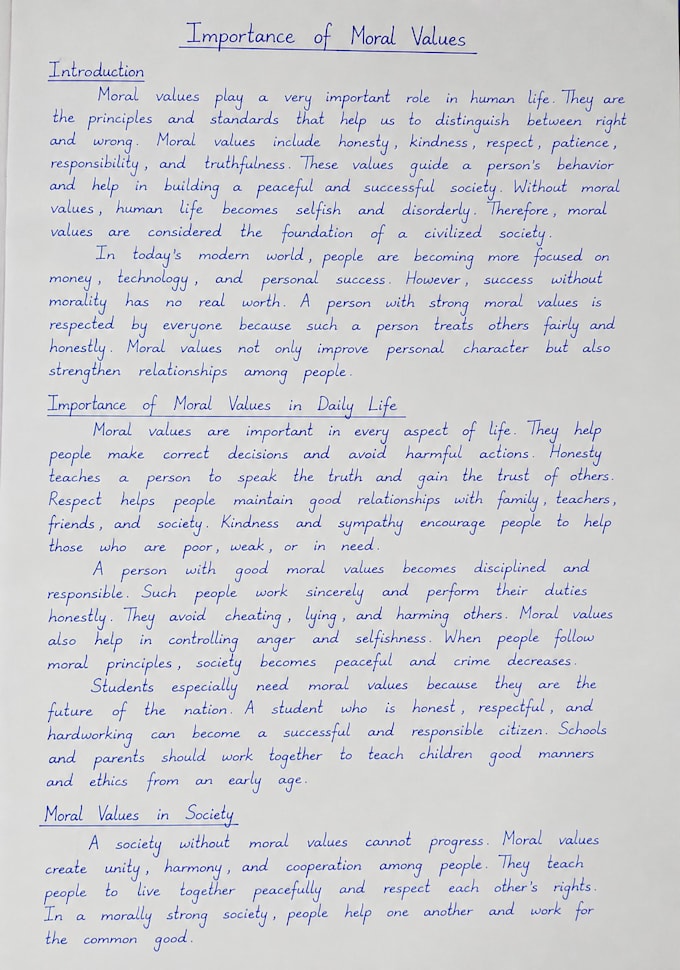 Importance of Moral Values
Introduction
Moral values play a very important role in human life. They are
the principles and standards that help us to distinguish between right
and wrong. Moral values include honesty, kindness, respect, patience,
responsibility, and truthfulness. These values guide a person's behavior
and help in building a peaceful and successful society. Without moral
values, human life becomes selfish and disorderly. Therefore, moral
values are considered the foundation of a civilized society.
In today's modern world, people are becoming more focused on
money, technology, and personal success. However, success without
morality has no real worth. A person with strong moral values is
respected by everyone because such a person treats others fairly and
honestly. Moral values not only improve personal character but also
strengthen relationships among people.
Importance of Moral Values in Daily Life
Moral values are important in every aspect of life. They help
people make correct decisions and avoid harmful actions. Honesty
teaches a person to speak the truth and gain the trust of others.
Respect helps people maintain good relationships with family, teachers,
friends, and society. Kindness and sympathy encourage people to help
those who are poor, weak, or in need.
A person with good moral values becomes disciplined and
responsible. Such people work sincerely and perform their duties
honestly. They avoid cheating, lying, and harming others. Moral values
also help in controlling anger and selfishness. When people follow
moral principles, society becomes peaceful and crime decreases.
Students especially need moral values because they are the
future of the nation. A student who is honest, respectful, and
hardworking can become a successful and responsible citizen. Schools
and parents should work together to teach children good manners
and ethics from an early age.
Moral Values in Society
A society without moral values cannot progress. Moral values
create unity, harmony, and cooperation among people. They teach
people to live together peacefully and respect each other's rights.
In a morally strong society, people help one another and work for
the common good.